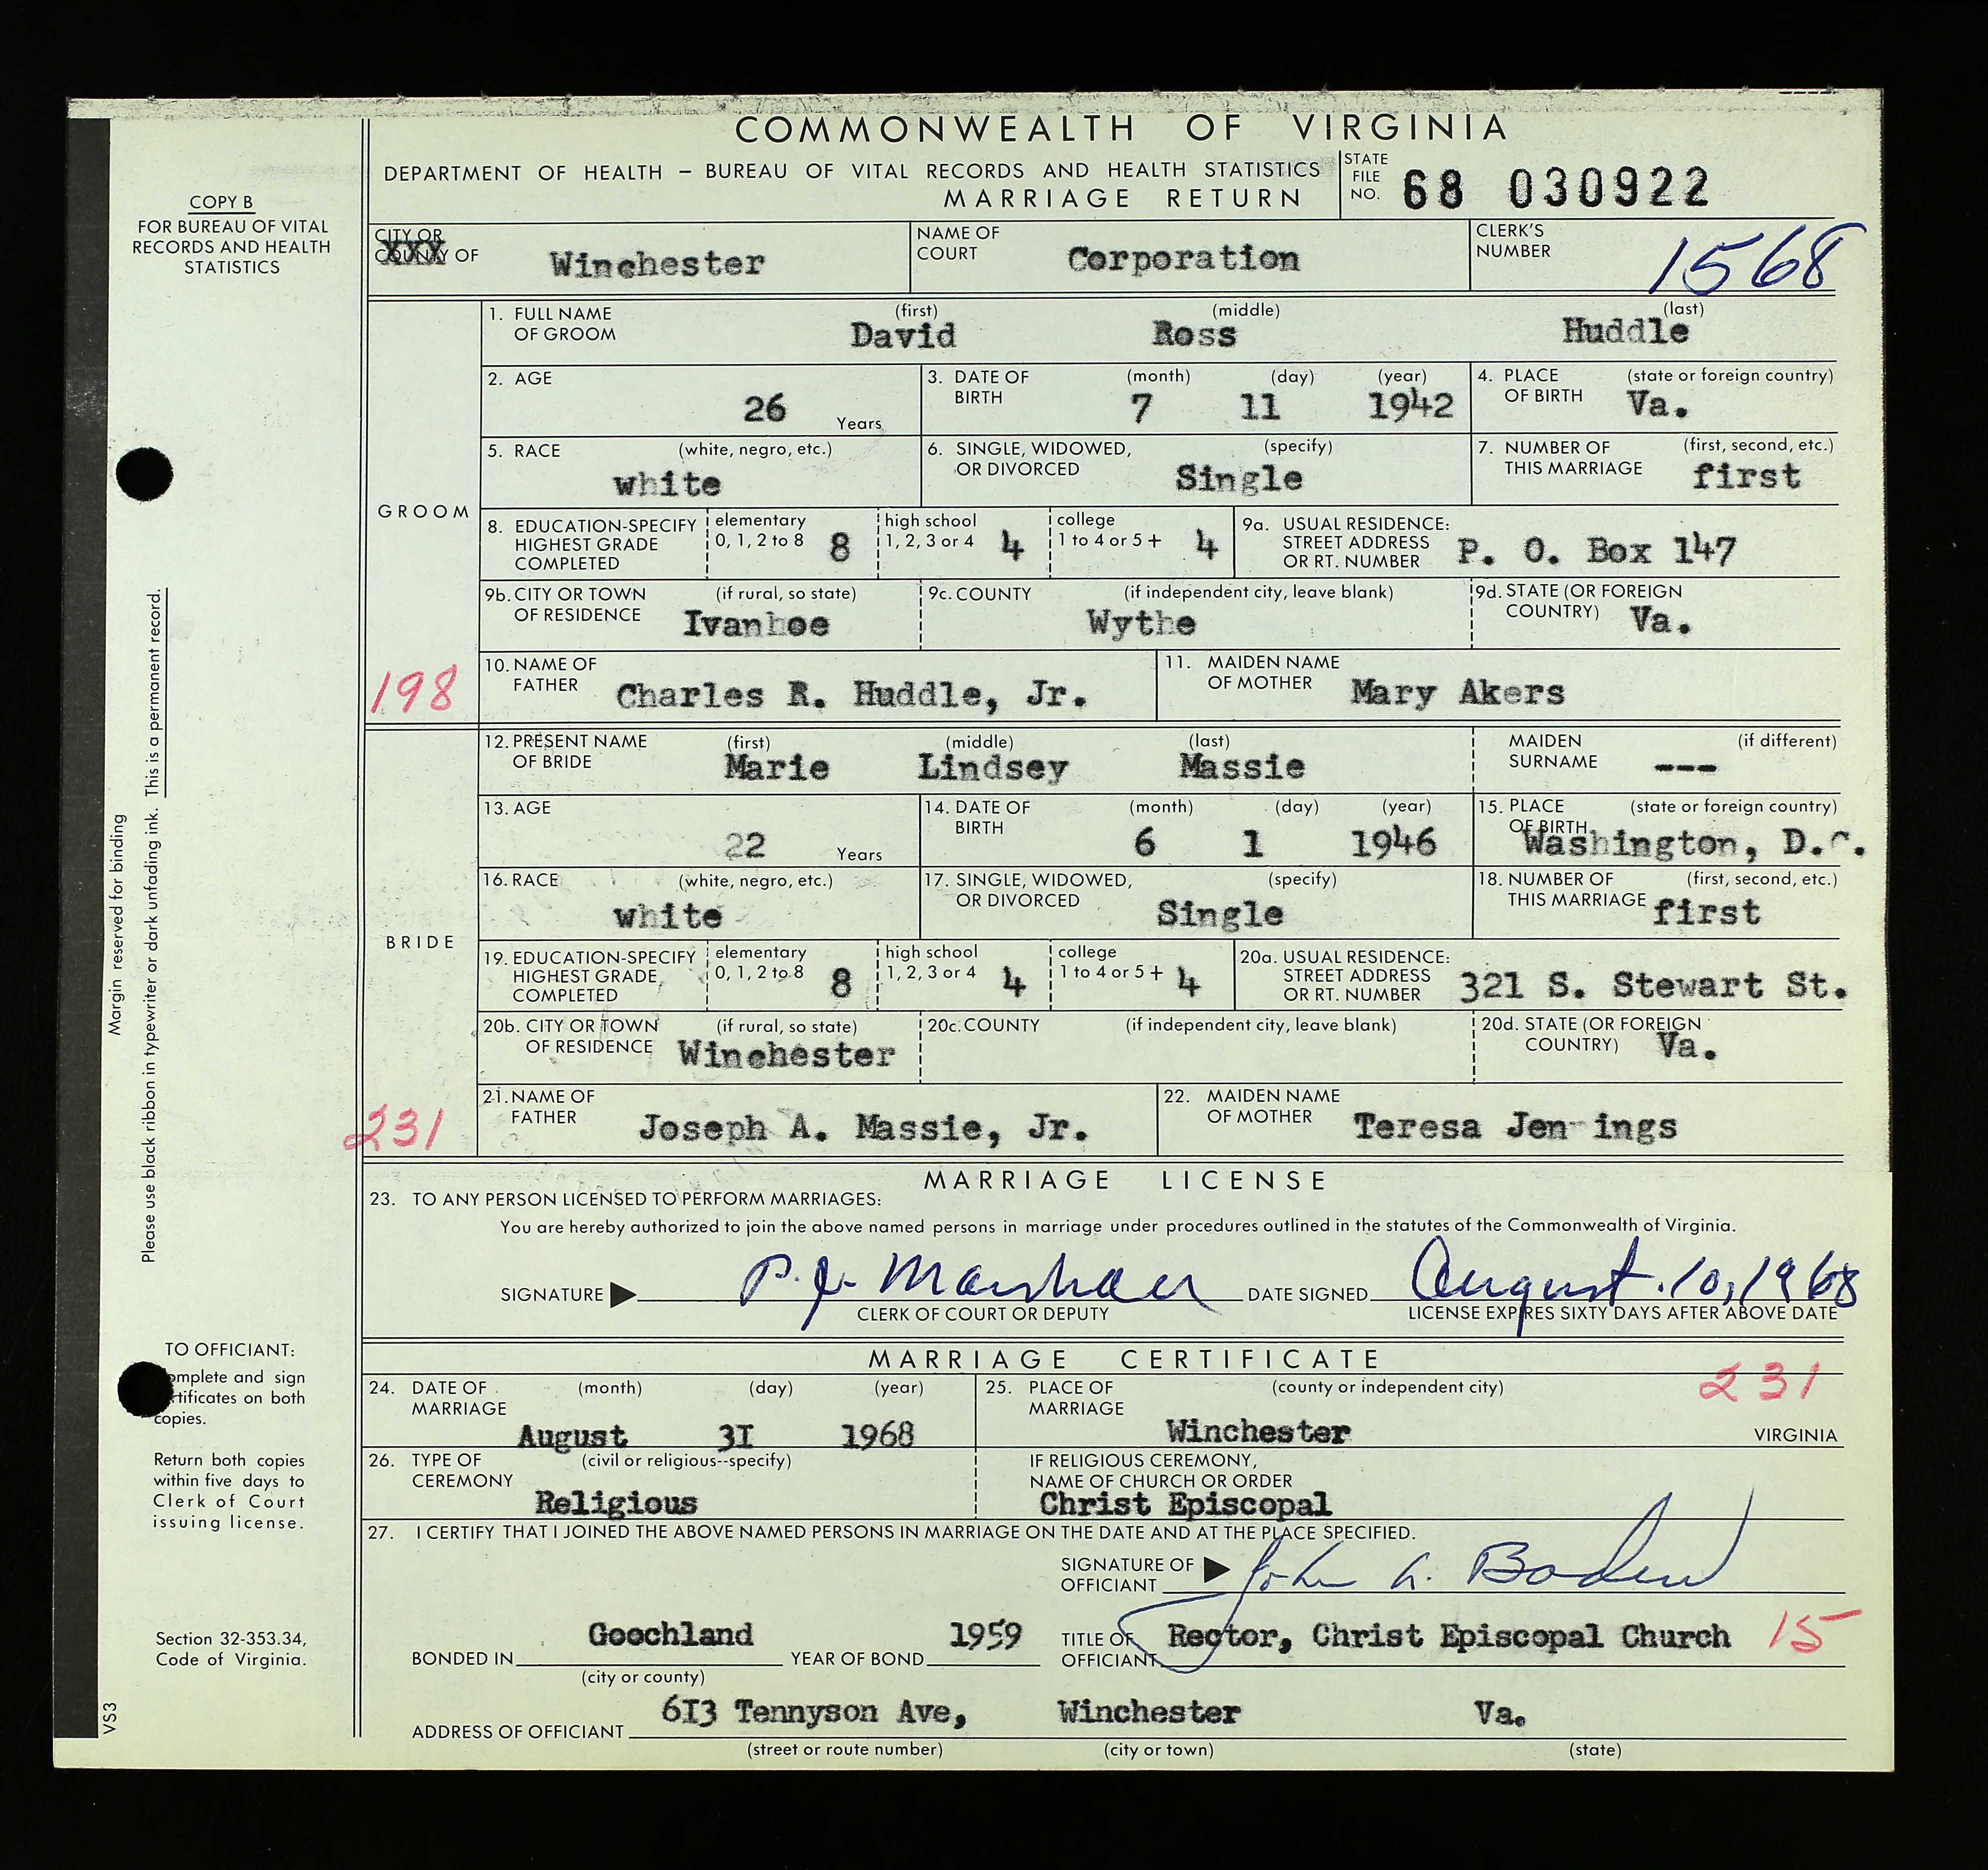 COMMONWEALTH OF VIRGINIA
DEPARTMENT OF HEALTH – BUREAU OF VITAL RECORDS AND HEALTH STATISTICS
MARRIAGE RETURN
STATE FILE NO. 68 030922
COPY B
FOR BUREAU OF VITAL
RECORDS AND HEALTH
STATISTICS
CITY OR
COUNTY OF XXX Winchester
NAME OF COURT Corporation
CLERK'S NUMBER 1568
GROOM
1. FULL NAME OF GROOM (first) David (middle) Ross (last) Huddle
2. AGE 26 Years
3. DATE OF BIRTH (month) 7 (day) 11 (year) 1942
4. PLACE OF BIRTH (state or foreign country) Va.
5. RACE (white, negro, etc.) white
6. SINGLE, WIDOWED, OR DIVORCED (specify) Single
7. NUMBER OF THIS MARRIAGE (first, second, etc.) first
8. EDUCATION-SPECIFY HIGHEST GRADE COMPLETED elementary 0, 1, 2 to 8 8 high school 1, 2, 3 or 4 4 college 1 to 4 or 5+ 4
9a. USUAL RESIDENCE: STREET ADDRESS OR RT. NUMBER P. O. Box 147
9b. CITY OR TOWN OF RESIDENCE (if rural, so state) Ivanhoe
9c. COUNTY (if independent city, leave blank) Wythe
9d. STATE (OR FOREIGN COUNTRY) Va.
198
10. NAME OF FATHER Charles R. Huddle, Jr.
11. MAIDEN NAME OF MOTHER Mary Akers
BRIDE
12. PRESENT NAME OF BRIDE (first) Marie (middle) Lindsey (last) Massie
MAIDEN SURNAME (if different) ---
13. AGE 22 Years
14. DATE OF BIRTH (month) 6 (day) 1 (year) 1946
15. PLACE OF BIRTH (state or foreign country) Washington, D.C.
16. RACE (white, negro, etc.) white
17. SINGLE, WIDOWED, OR DIVORCED (specify) Single
18. NUMBER OF THIS MARRIAGE (first, second, etc.) first
19. EDUCATION-SPECIFY HIGHEST GRADE COMPLETED elementary 0, 1, 2 to 8 8 high school 1, 2, 3 or 4 4 college 1 to 4 or 5+ 4
20a. USUAL RESIDENCE: STREET ADDRESS OR RT. NUMBER 321 S. Stewart St.
20b. CITY OR TOWN OF RESIDENCE (if rural, so state) Winchester
20c. COUNTY (if independent city, leave blank)
20d. STATE (OR FOREIGN COUNTRY) Va.
231
21. NAME OF FATHER Joseph A. Massie, Jr.
22. MAIDEN NAME OF MOTHER Teresa Jennings
MARRIAGE LICENSE
23. TO ANY PERSON LICENSED TO PERFORM MARRIAGES:
You are hereby authorized to join the above named persons in marriage under procedures outlined in the statutes of the Commonwealth of Virginia.
SIGNATURE P. J. Marshall DATE SIGNED August 10, 1968
CLERK OF COURT OR DEPUTY
LICENSE EXPIRES SIXTY DAYS AFTER ABOVE DATE
MARRIAGE CERTIFICATE
24. DATE OF MARRIAGE (month) August (day) 31 (year) 1968
25. PLACE OF MARRIAGE (county or independent city) Winchester VIRGINIA
231
26. TYPE OF CEREMONY (civil or religious--specify) Religious
IF RELIGIOUS CEREMONY, NAME OF CHURCH OR ORDER Christ Episcopal
27. I CERTIFY THAT I JOINED THE ABOVE NAMED PERSONS IN MARRIAGE ON THE DATE AND AT THE PLACE SPECIFIED.
SIGNATURE OF OFFICIANT John G. Boden
BONDED IN Goochland (city or county) YEAR OF BOND 1959
TITLE OF OFFICIANT Rector, Christ Episcopal Church
15
ADDRESS OF OFFICIANT 613 Tennyson Ave, Winchester Va.
(street or route number) (city or town) (state)
Margin reserved for binding
Please use black ribbon in typewriter or dark unfading ink. This is a permanent record.
TO OFFICIANT:
omplete and sign
rtificates on both
copies.
Return both copies
within five days to
Clerk of Court
issuing license.
Section 32-353.34,
Code of Virginia.
VS3